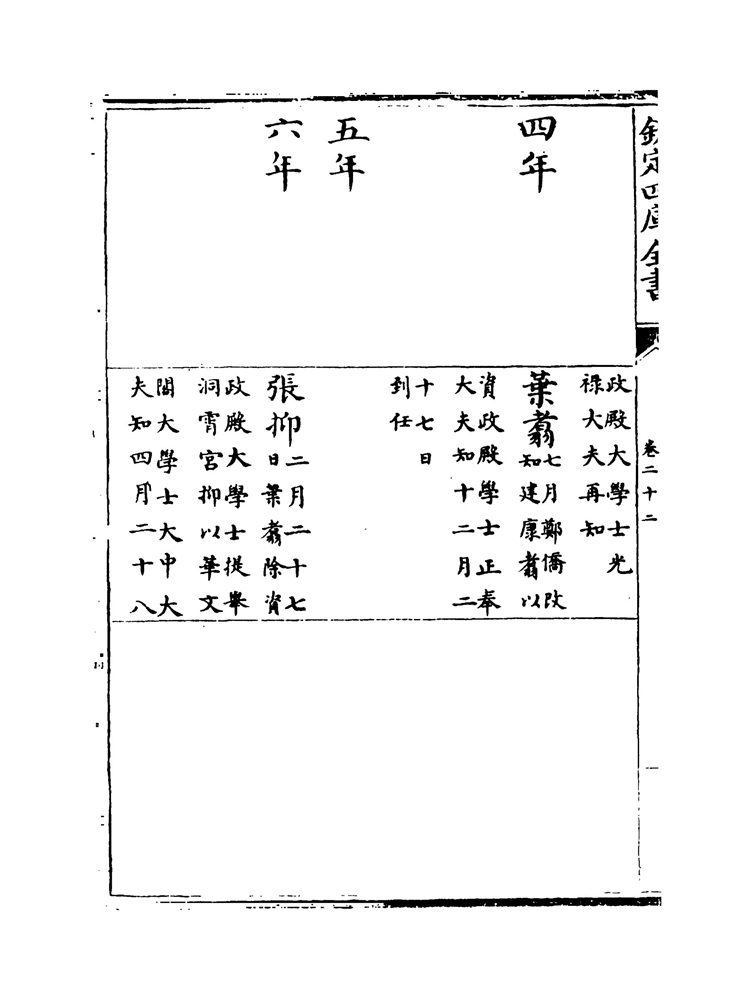 欽定四庫全書
卷二十二
政殿大學士光
祿大夫再知
四年
葉翥
七月鄭僑改
知建康翥以
資政殿學士正奉
大夫知十二月二
十七日
到任
五年
六年
張抑
二月二十七
日葉翥除資
政殿大學士提舉
洞霄宮抑以華文
閣大學士大中大
夫知四月二十八